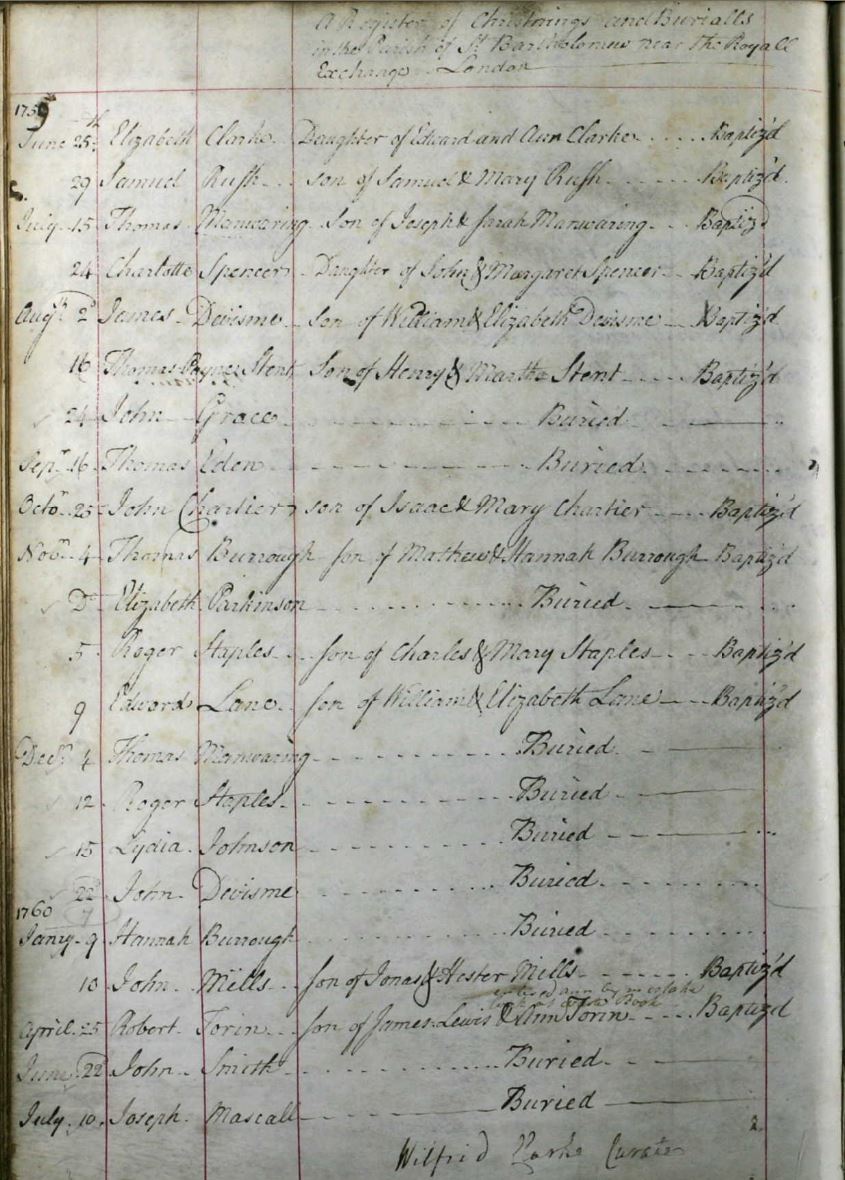 A Register of Christnings and Burialls
in the Parish of St Bartholomew near the Royall
Exchange London
1759
June 25th Elizabeth Clarke Daughter of Edward and Ann Clarke Baptiz'd
29 Samuel Rush son of Samuel & Mary Rush Baptiz'd
July 15 Thomas Manwaring Son of Joseph & Sarah Manwaring Baptiz'd
24 Charlotte Spencer Daughter of John & Margaret Spencer Baptiz'd
Augst 2d James Devisme Son of William & Elizabeth Devisme Baptiz'd
16 Thomas Payne Stent Son of Henry & Martha Stent Baptiz'd
24 John Grace Buried
Sepr 16 Thomas Eden Buried
Octor 25 John Chartier son of Isaac & Mary Chartier Baptiz'd
Novr 4 Thomas Burrough son of Mathew & Hannah Burrough Baptiz'd
Do Elizabeth Parkinson Buried
5 Roger Staples son of Charles & Mary Staples Baptiz'd
9 Edward Lane son of William & Elizabeth Lane Baptiz'd
Decr 4 Thomas Manwaring Buried
12 Roger Staples Buried
15 Lydia Johnson Buried
22d John Devisme Buried
1760 7
Jany 9 Hannah Burrough Buried
10 John Mills son of Jonas & Hester Mills Baptiz'd
by mistake
Book
April 25 Robert Torin son of James Lewis & Ann Torin Baptiz'd
June 22 John Smith Buried
July 10 Joseph Mascall Buried
2
Wilfrid Curate